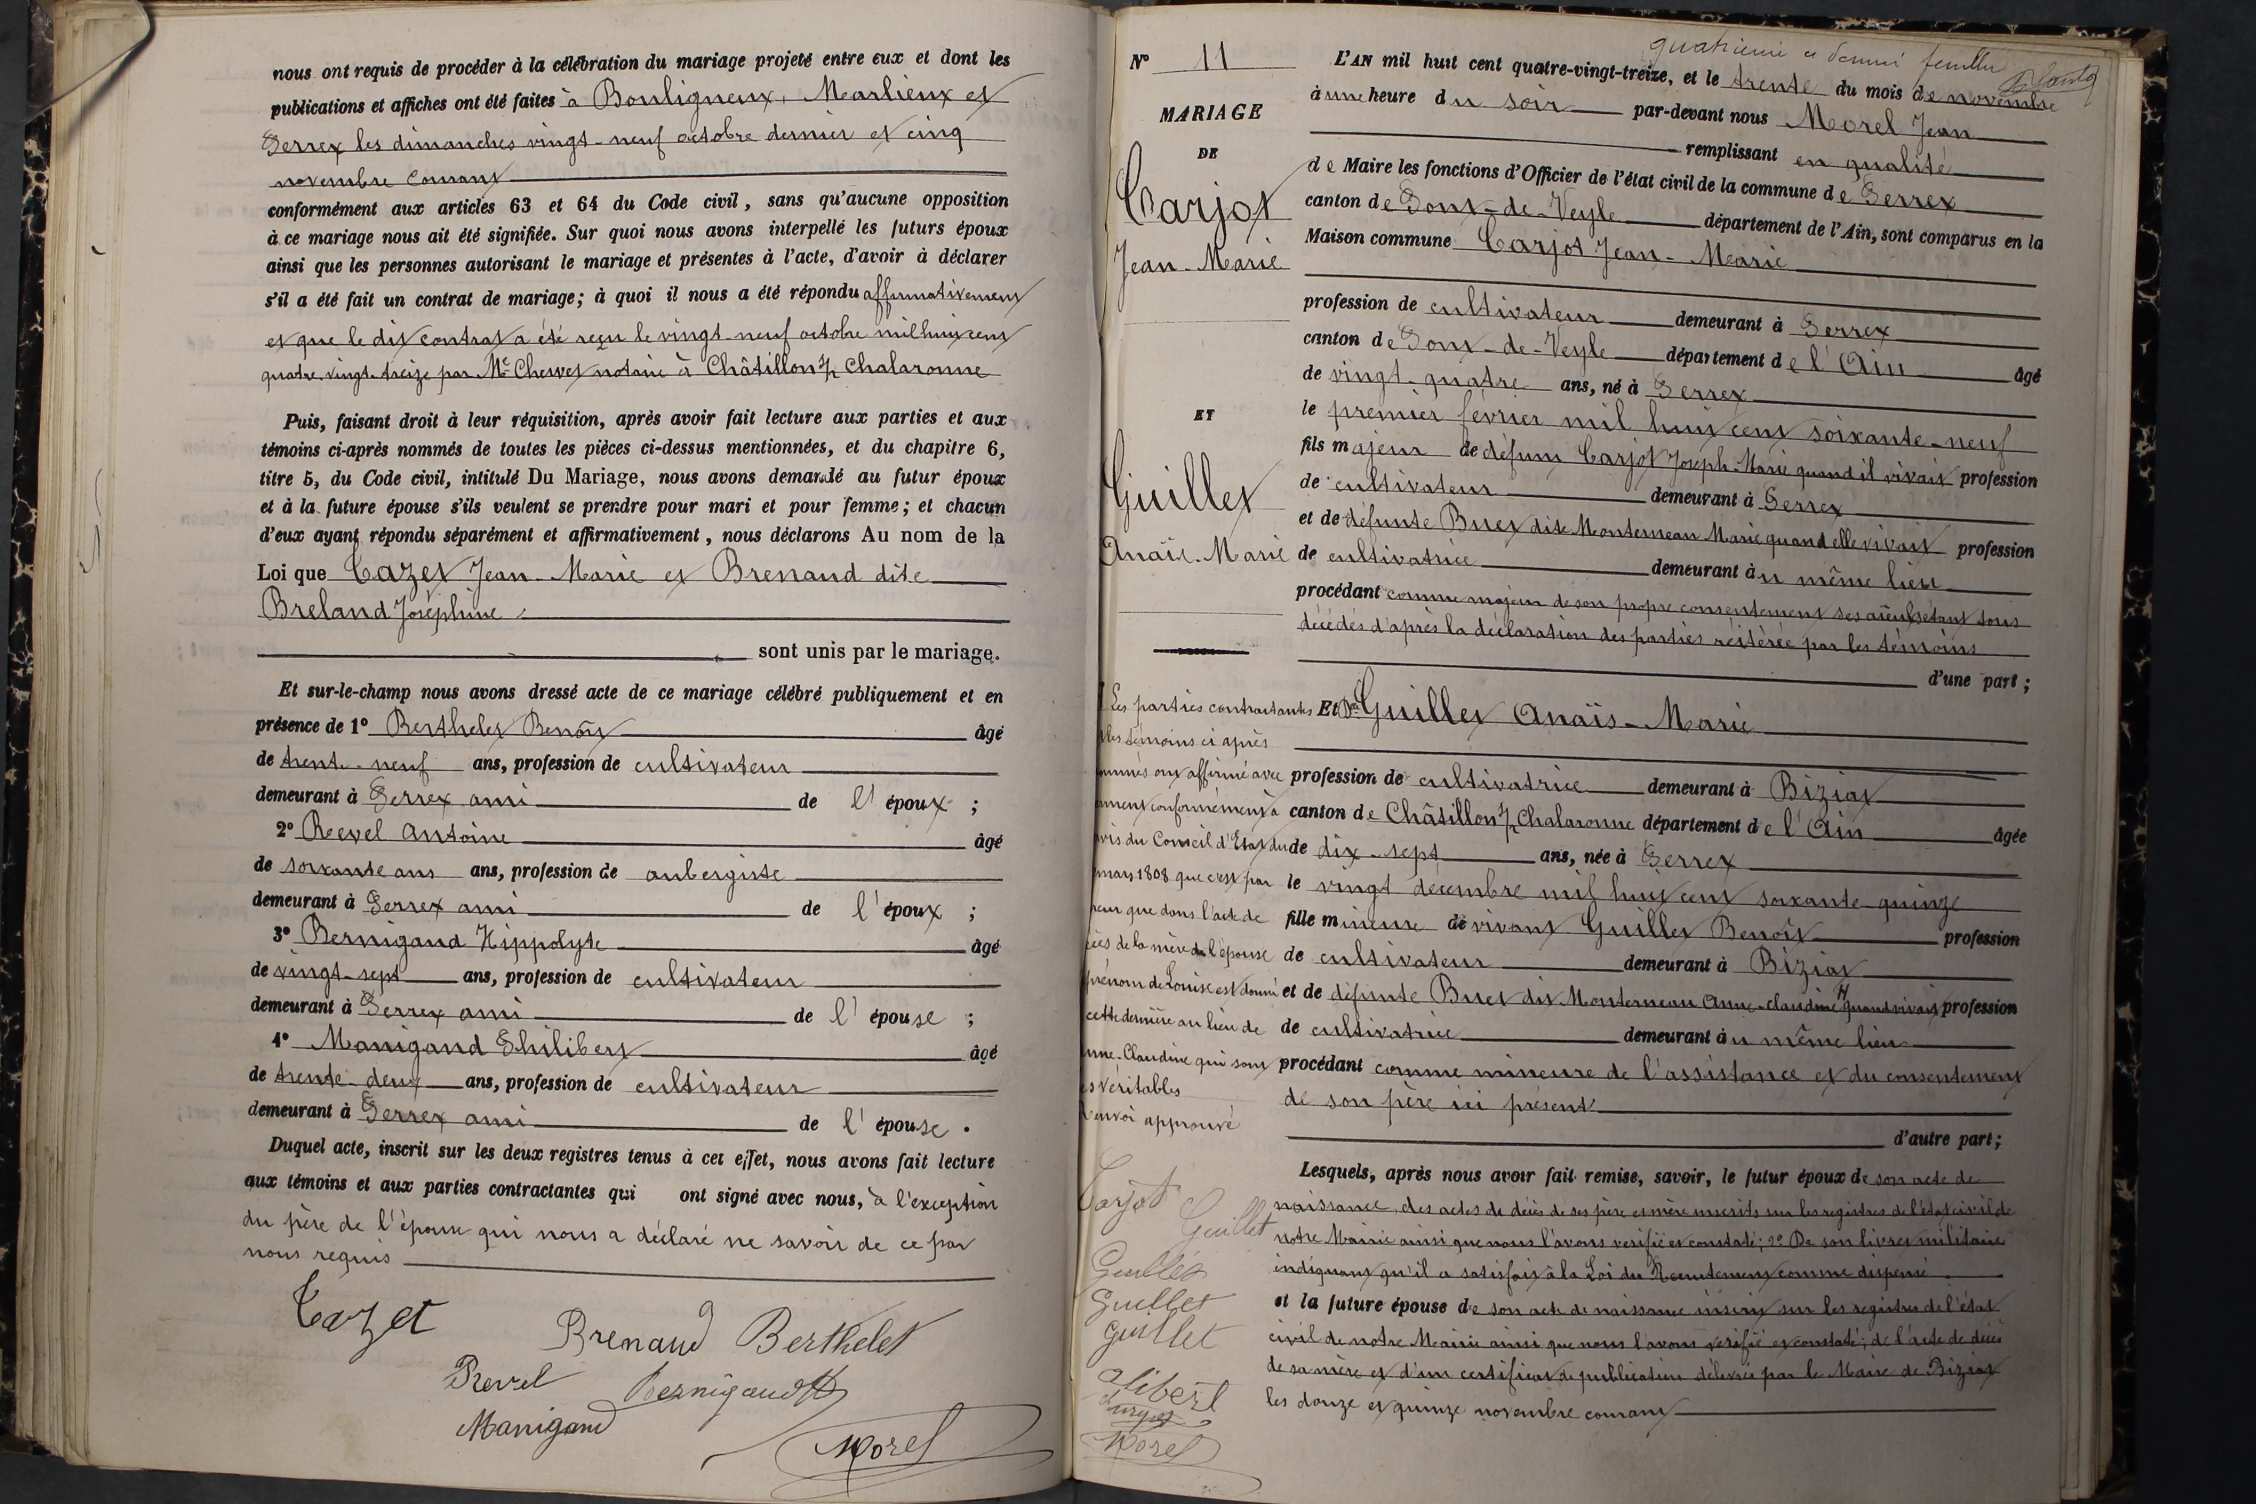 nous ont requis de procéder à la célébration du mariage projeté entre eux et dont les
publications et affiches ont été faites à Bouligneux, Marlieux et
Perrex les dimanches vingt-neuf octobre dernier et cinq
novembre courant
conformément aux articles 63 et 64 du Code civil, sans qu'aucune opposition
à ce mariage nous ait été signifiée. Sur quoi nous avons interpellé les futurs époux
ainsi que les personnes autorisant le mariage et présentes à l'acte, d'avoir à déclarer
s'il a été fait un contrat de mariage; à quoi il nous a été répondu affirmativement
et que le dit contrat a été reçu le vingt-neuf octobre mil huit cent
quatre-vingt-treize par Me notaire à Châtillon s/ Chalaronne
Puis, faisant droit à leur réquisition, après avoir fait lecture aux parties et aux
témoins ci-après nommés de toutes les pièces ci-dessus mentionnées, et du chapitre 6,
titre 5, du Code civil, intitulé Du Mariage, nous avons demandé au futur époux
et à la future épouse s'ils veulent se prendre pour mari et pour femme; et chacun
d'eux ayant répondu séparément et affirmativement, nous déclarons Au nom de la
Loi que Cazet Jean-Marie et Brenaud dite
Breland Joséphine
sont unis par le mariage.
Et sur-le-champ nous avons dressé acte de ce mariage célébré publiquement et en
présence de 1° Berthelet Benoît âgé
de trente-neuf ans, profession de cultivateur
demeurant à Perrex ami de l'époux ;
2° Revel Antoine âgé
de soixante ans ans, profession de aubergiste
demeurant à Perrex ami de l'époux ;
3° Bernigaud Hippolyte âgé
de vingt-sept ans, profession de cultivateur
demeurant à Perrex ami de l'épouse ;
4° Manigand Philibert âgé
de trente-deux ans, profession de cultivateur
demeurant à Perrex ami de l'épouse .
Duquel acte, inscrit sur les deux registres tenus à cet effet, nous avons fait lecture
aux témoins et aux parties contractantes qui ont signé avec nous, à l'exception
du père de l'épouse qui nous a déclaré ne savoir de ce par
nous requis
Cazet
Brenaud Berthelet
Revel Bernigaud H
Manigand
Morel
quatrième et dernier feuillet
N° 11
MARIAGE
DE
Carjot
Jean-Marie
ET
Guillet
Anaïs-Marie
L'AN mil huit cent quatre-vingt-treize, et le trente du mois de novembre
à une heure du soir par-devant nous Morel Jean
remplissant en qualité
de Maire les fonctions d'Officier de l'état civil de la commune de Perrex
canton de Pont-de-Veyle département de l'Ain, sont comparus en la
Maison commune Carjot Jean-Marie
profession de cultivateur demeurant à Perrex
canton de Pont-de-Veyle département de l'Ain âgé
de vingt-quatre ans, né à Perrex
le premier février mil huit cent soixante-neuf
fils majeur de défunt Carjot Joseph-Marie quand il vivait profession
de cultivateur demeurant à Perrex
et de défunte Buet dite Monterneau Marie quand elle vivait profession
de cultivatrice demeurant au même lieu
procédant comme majeur de son propre consentement ses aïeuls étant tous
décédés d'après la déclaration des parties réitérée par les témoins
d'une part ;
Et Dlle Guillet Anaïs-Marie
profession de cultivatrice demeurant à Biziat
canton de Châtillon s/ Chalaronne département de l'Ain âgée
de dix-sept ans, née à Perrex
le vingt décembre mil huit cent soixante-quinze
fille mineure de vivant Guillet Benoît profession
de cultivateur demeurant à Biziat
et de défunte Buet dit Monterneau Anne-Claudine quand vivait profession
de cultivatrice demeurant au même lieu
procédant comme mineure de l'assistance et du consentement
de son père ici présent
d'autre part ;
Lesquels, après nous avoir fait remise, savoir, le futur époux de son acte de
naissance, des actes de décès de ses père et mère inscrits sur les registres de l'état civil de
notre Mairie ainsi que nous l'avons vérifié et constaté ; 2° De son livret militaire
indiquant qu'il a satisfait à la Loi du Recrutement comme dispensé
et la future épouse de son acte de naissance inscrit sur les registres de l'état
civil de notre Mairie ainsi que nous l'avons vérifié et constaté ; de l'acte de décès
de sa mère et d'un certificat de publication délivré par le Maire de Biziat
les douze et quinze novembre courant
Les parties contractantes
les témoins ci après
ommés ont affirmé avec
ment conformément à
avis du Conseil d'Etat du
mars 1808 que c'est par
reur que dans l'acte de
cès de la mère de l'épouse
prénom de Louise est donné
cette dernière au lieu de
nne-Claudine qui sont
es véritables
Renvoi approuvé
Carjot
Guillet
Guillet
Guillet
Guillet
Alibert
Morel